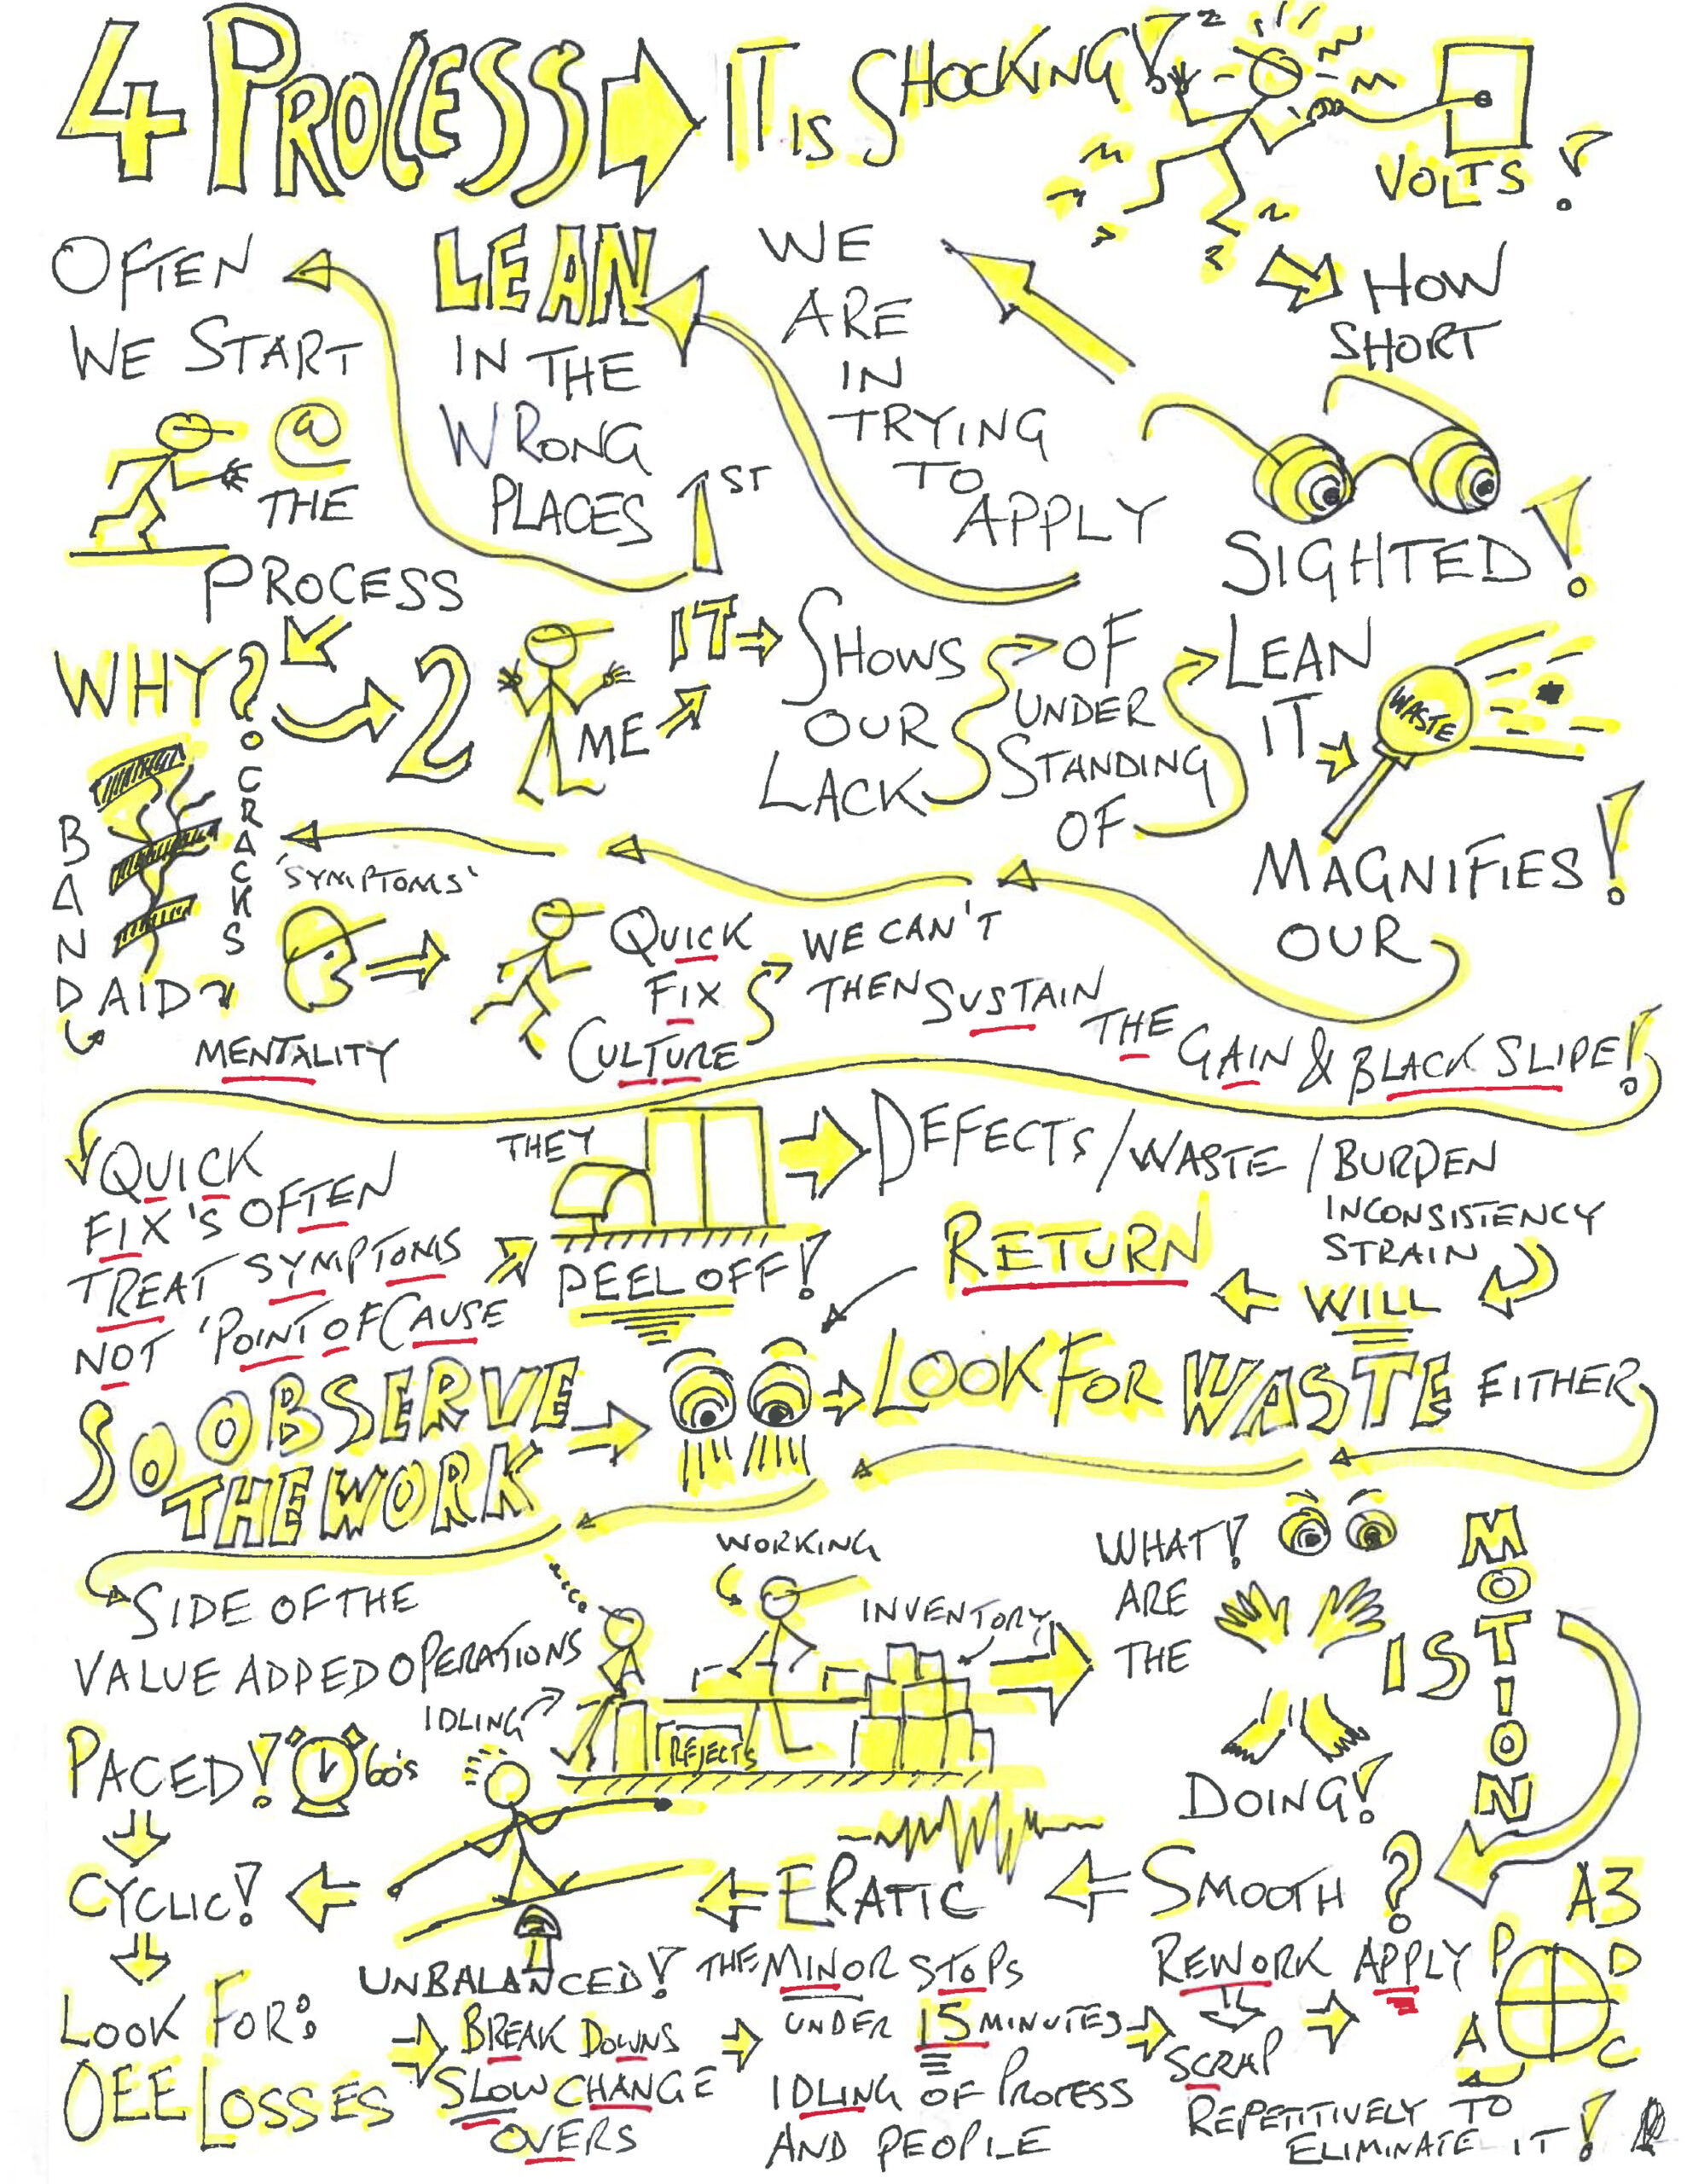 4 PROCESS IT IS SHOCKING!
VOLTS!
HOW
SHORT
SIGHTED!
WE
ARE
IN
TRYING
TO
APPLY
LEAN
IN THE
WRONG
PLACES 1ST
OFTEN
WE START
@
THE
PROCESS
WHY?
2
ME
IT
SHOWS
OUR
LACK
OF
UNDER
STANDING
OF
LEAN
IT
WASTE
MAGNIFIES!
OUR
'SYMPTOMS'
OCRACKS
BAND AID
MENTALITY
QUICK
FIX
CULTURE
WE CAN'T
THEN SUSTAIN
THE
GAIN & BLACK SLIDE!
QUICK
FIX'S OFTEN
TREAT SYMPTOMS
NOT 'POINT OF CAUSE
THEY
PEEL OFF!
DEFECTS/WASTE/BURDEN
INCONSISTENCY
STRAIN
WILL
RETURN
SO OBSERVE
THE WORK
LOOK FOR WASTE EITHER
SIDE OF THE
VALUE ADDED OPERATIONS
IDLING
WORKING
INVENTORY
REJECTS
WHAT!
ARE
THE
DOING!
IS
MOTION
SMOOTH?
ERATIC
UNBALANCED!
PACED! 60's
CYCLIC!
LOOK FOR:
OEE LOSSES
BREAK DOWNS
SLOW CHANGE
OVERS
THE MINOR STOPS
UNDER 15 MINUTES
IDLING OF PROCESS
AND PEOPLE
REWORK
SCRAP
APPLY
A3
P D
A C
REPETITIVELY TO
ELIMINATE IT!